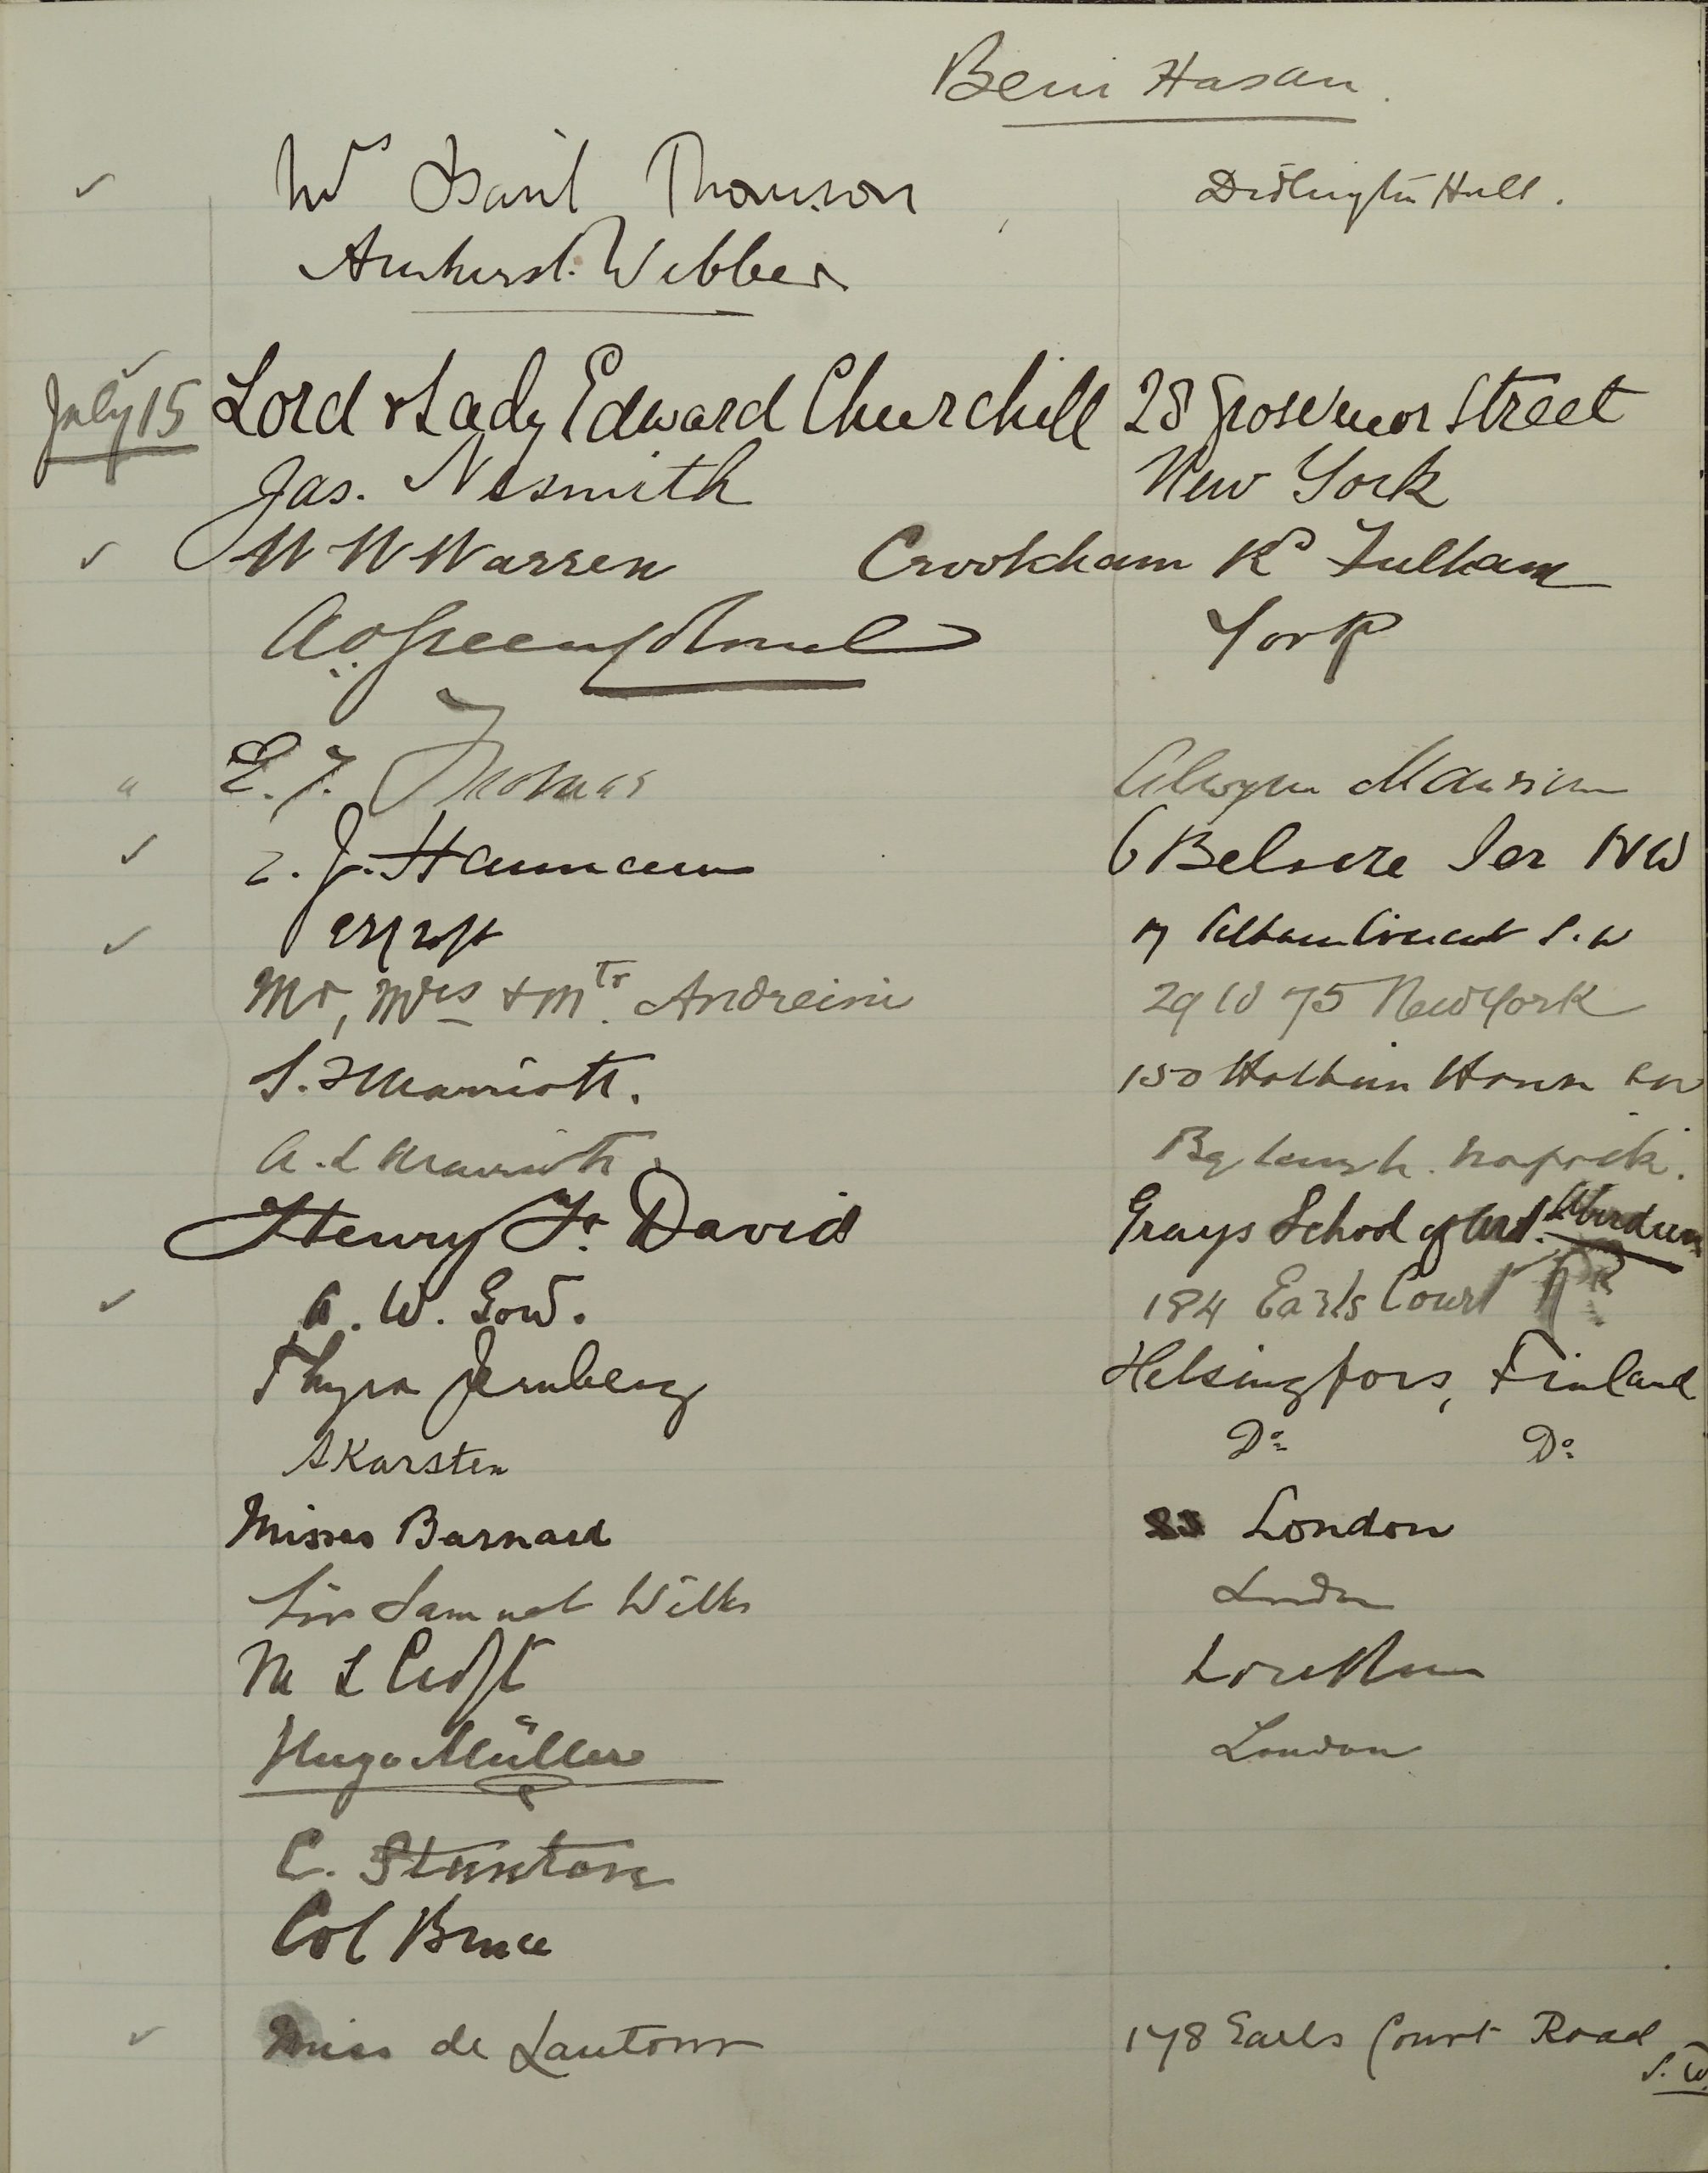 Beni Hasan.
Mrs Basil Thomson Didlington Hall.
Amherst Webber
July 15 Lord & Lady Edward Churchill 28 Grosvenor Street
Jas. Nesmith New York
W W Warren Crookham Rd Fulham
York
E. J. Thomas Alwyn Mansion
J. Hamman 6 Belsize Ter NW
17 Albam Crescent S.W
Mr, Mrs & Mtr. Andreini 29 W 75 New York
S. Marriott. 150 Holbein House
A. L Marriott.
Henry Jr. David Grays School of Art. Aberdeen
A. W. Gow. 184 Earls Court Rd
Thyra Jernberg Helsingfors, Finland
A Karsten Do Do
Misses Barnard London
Sir Samuel Wilks London
M L Croft London
Hugo Müller London
C. Stunton
Col Bruce
Miss de Lautour 178 Earls Court Road
S.W.